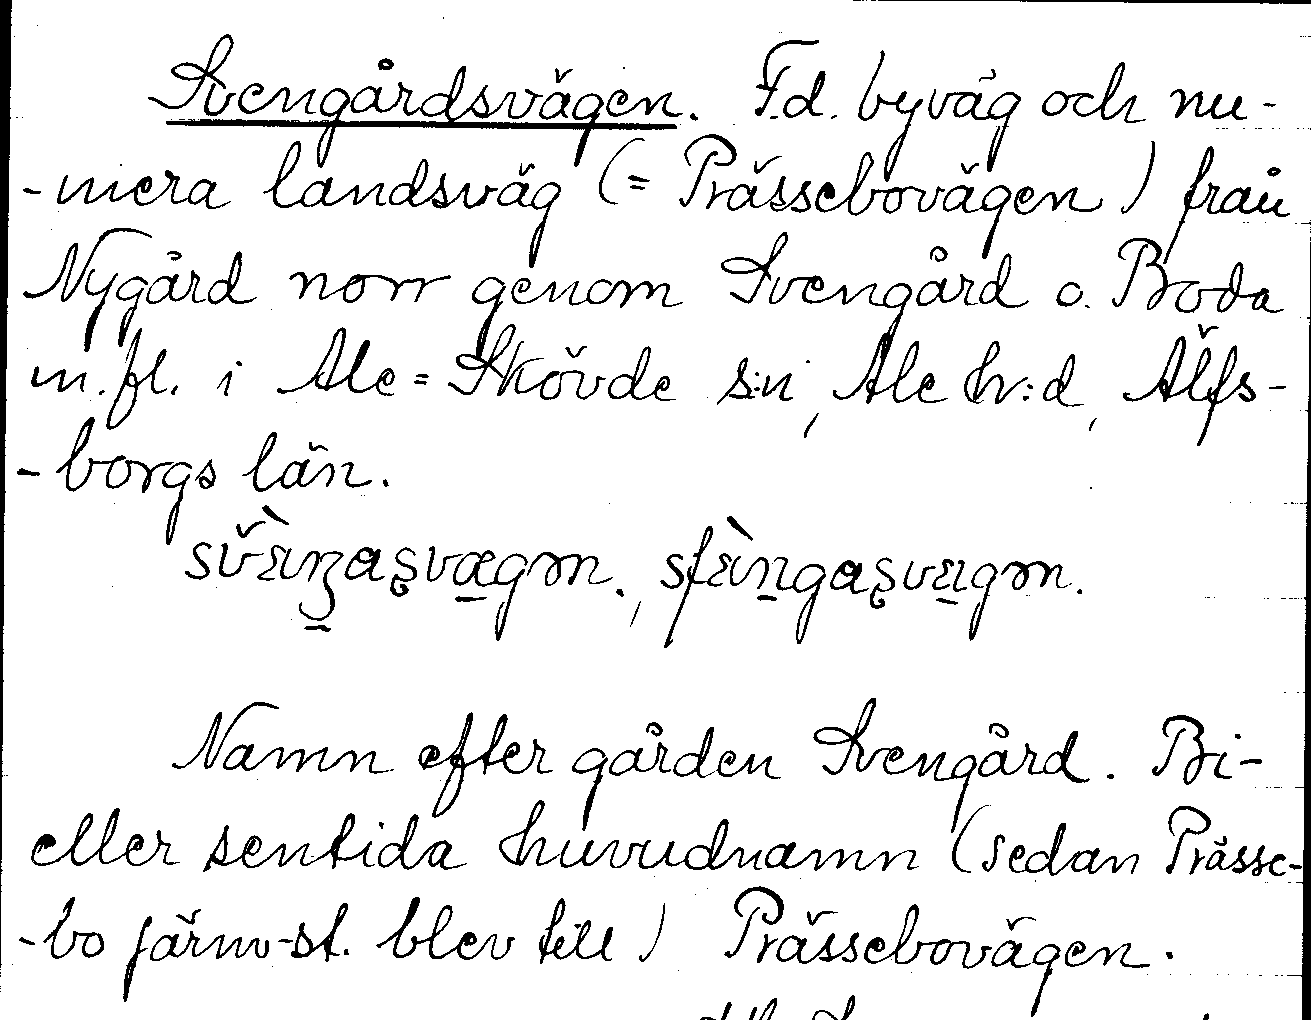 Svengårdsvägen. F.d. byväg och nu-
-mera landsväg (= Prässebovägen) från
Nygård norr genom Svengård o. Boda
m.fl. i Ale=Skövde s:n, Ale hr:d, Älfs-
-borgs län.
Namn efter gården Svengård. Bi-
eller sentida huvudnamn (sedan Prässe-
-bo järnv-st. blev till) Prässebovägen.